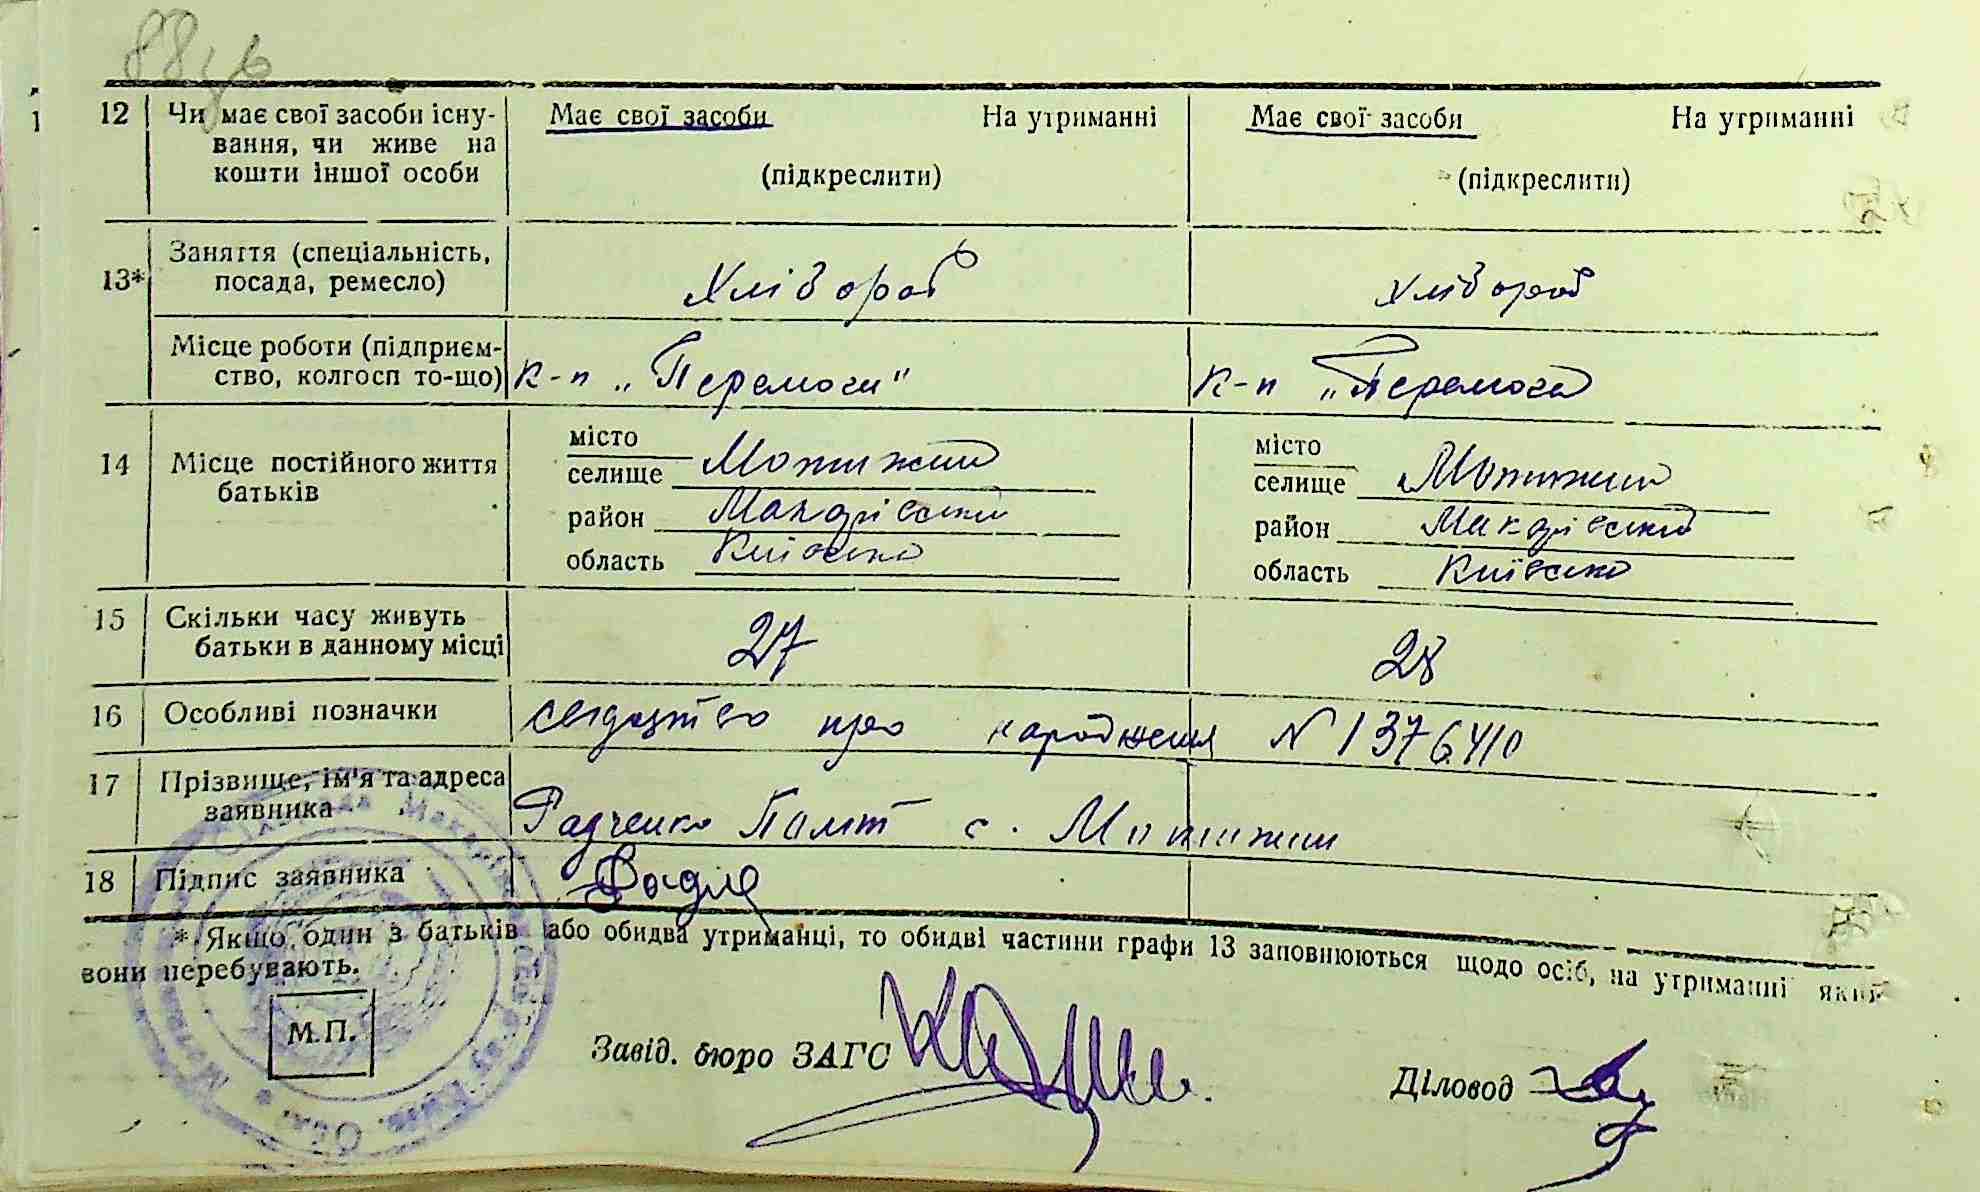 88
12 Чи має свої засоби існу- Має свої засоби На утриманні Має свої засоби На утриманні
вання, чи живе на
кошти іншої особи (підкреслити) (підкреслити)
13* Заняття (спеціальність,
посада, ремесло) Хлібороб Хлібороб
Місце роботи (підприєм-
ство, колгосп то-що) к-п „Перемога" к-п „Перемога
14 Місце постійного життя
батьків
місто
селище Мотижин
район Макарівський
область Київська
місто
селище Мотижин
район Макарівський
область Київська
15 Скільки часу живуть
батьки в данному місці 27 28
16 Особливі позначки свідоцтво про народження N 1376410
17 Прізвище, ім'я та адреса
заявника Радченко с. Мотижин
18 Підпис заявника
* Якщо один з батьків або обидва утриманці, то обидві частини графи 13 заповнюються щодо осіб, на утриманні яких
вони перебувають.
М.П.
Завід. бюро ЗАГС
Діловод